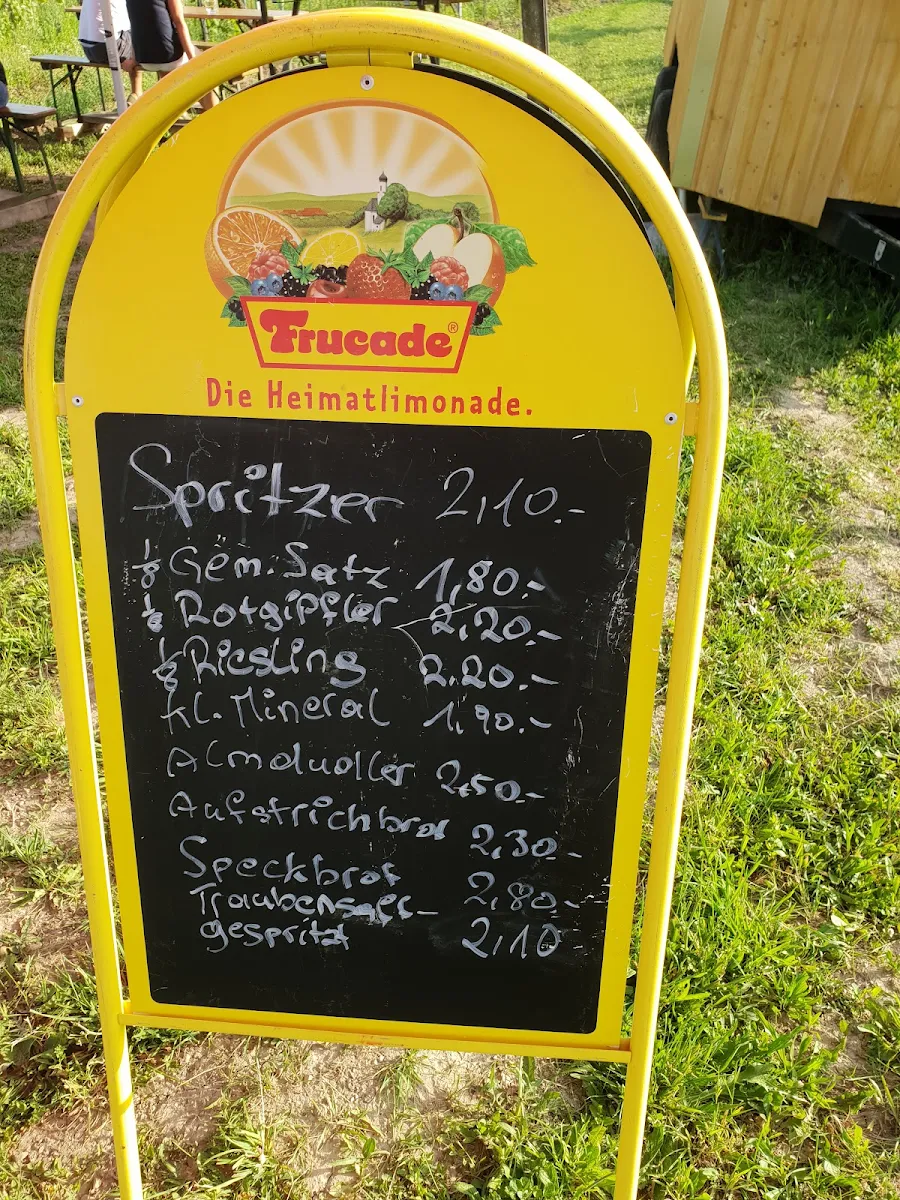 Frucade®
Die Heimatlimonade.
Spritzer 2,10.-
1/8 Gem. Satz 1,80.-
1/8 Rotgipfler 2,20.-
1/8 Riesling 2.20.-
Kl. Mineral 1,90.-
Almdudler 2,50.-
Aufstrichbrot 2,30.-
Speckbrot 2,80.-
Traubensaft-
gespritzt 2,10